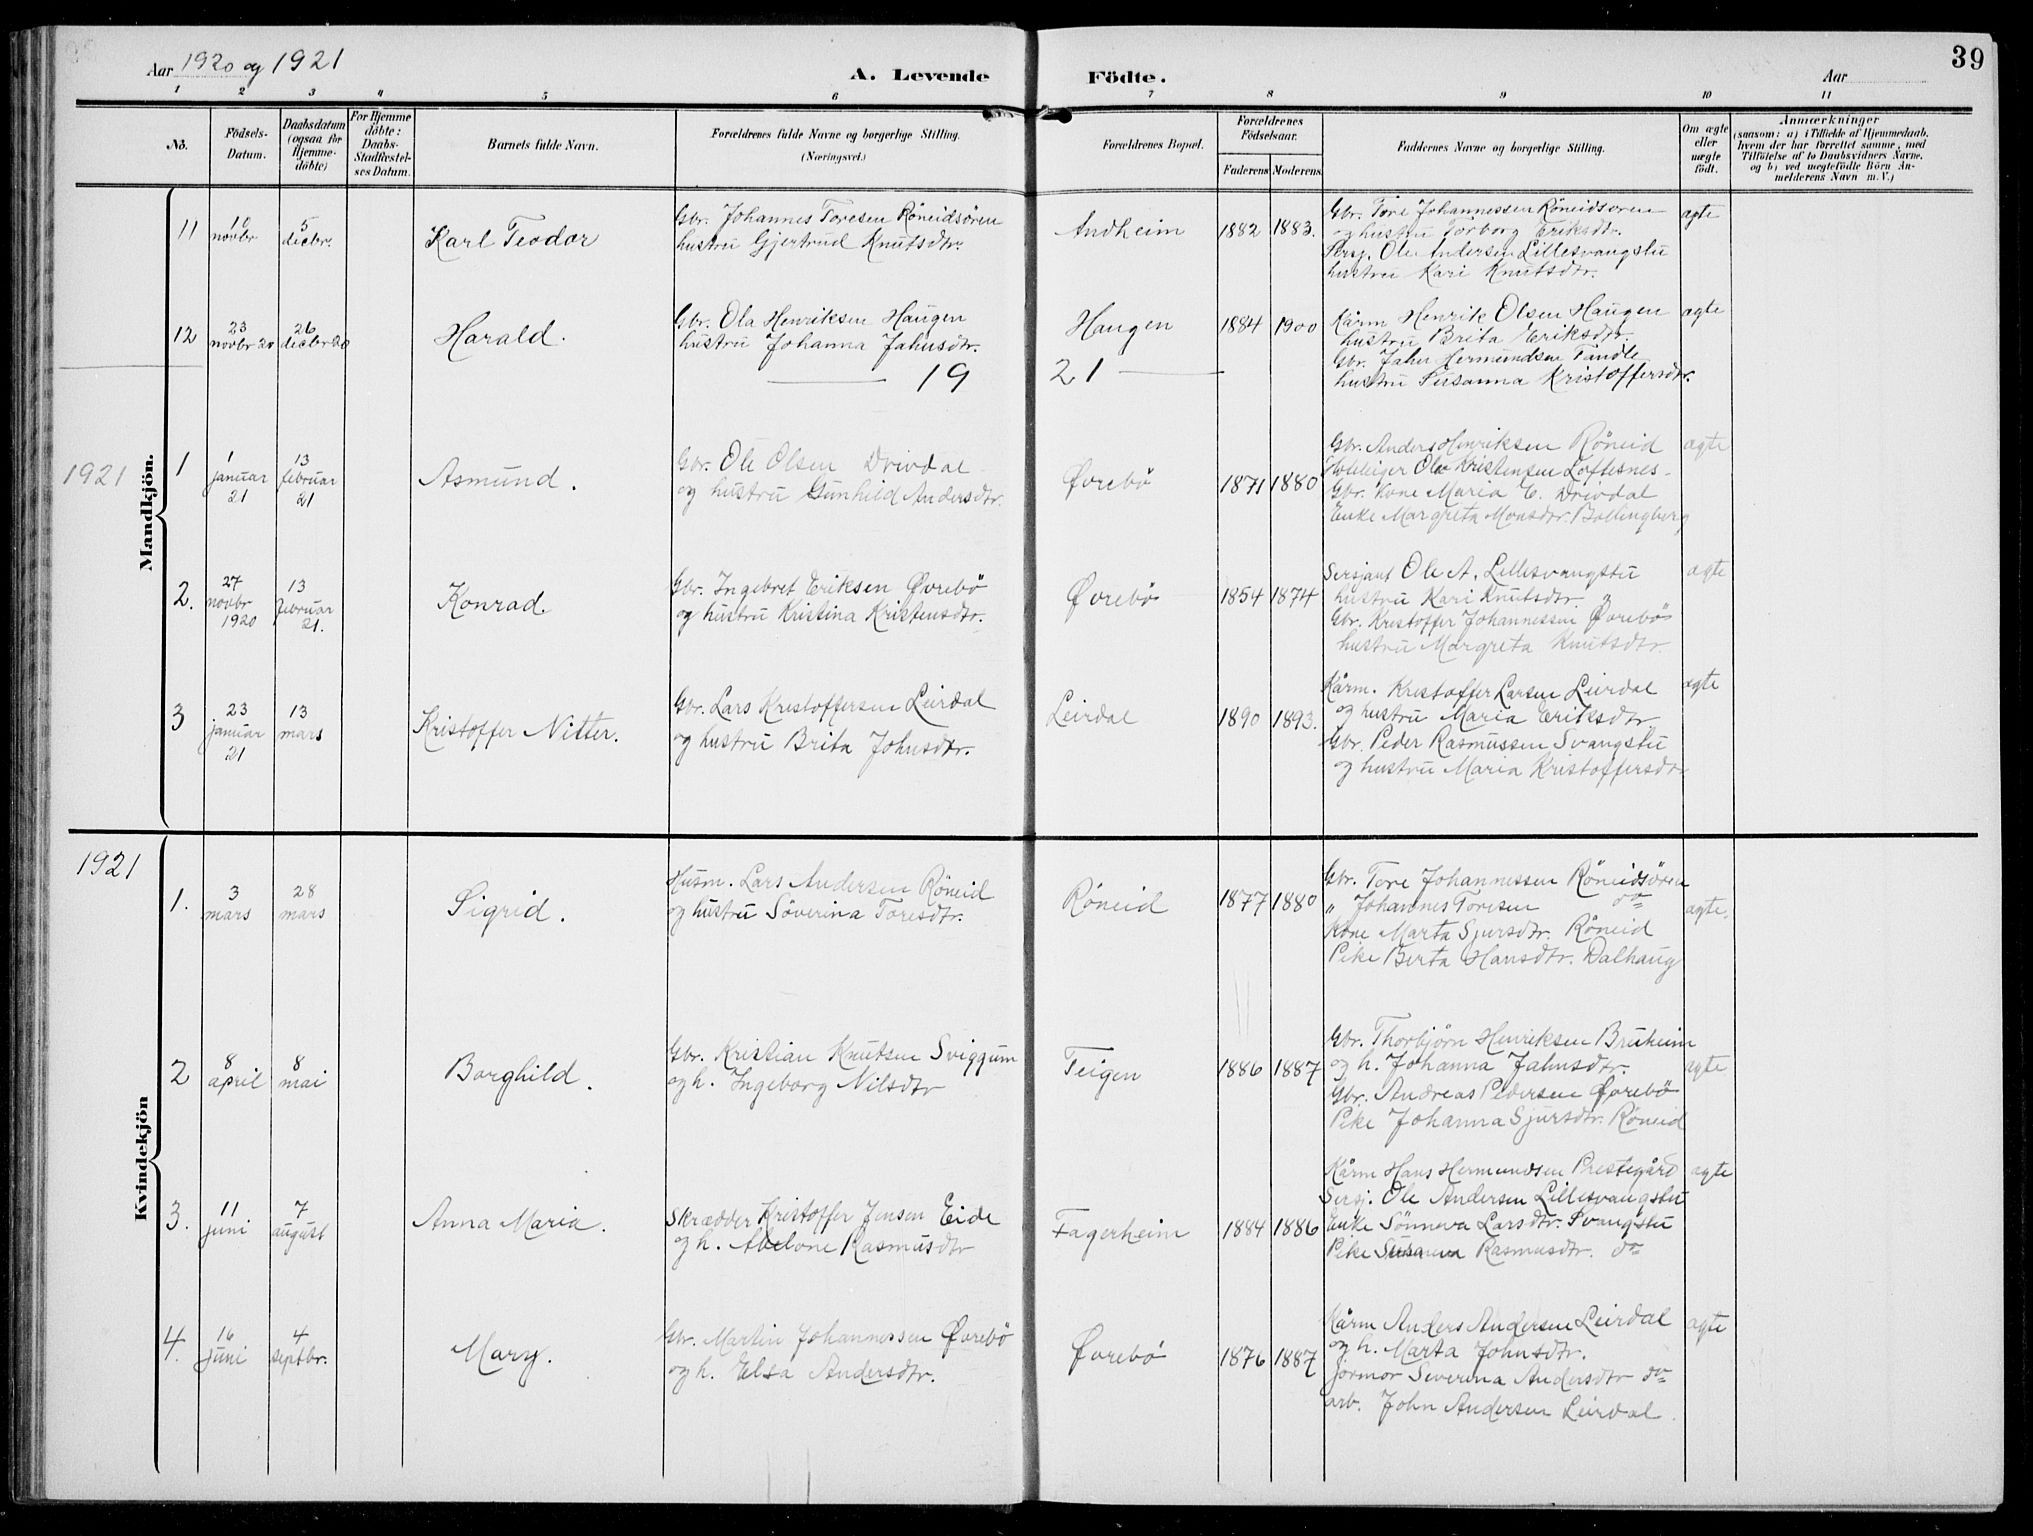 39
Aar 1920 og 1921
A. Levende
Födte.
Aar
1 2 3 4 5 6 7 8 9 10 11
No.
Födsels-
Datum.
Daabsdatum
(ogsaa for
Hjemme-
döbte)
For Hjemme
döbte:
Daabs-
Stadfæstel-
ses Datum.
Barnets fulde Navn.
Forældrenes fulde Navne og borgerlige Stilling.
(Næringsvei.)
Forældrenes Bopæl.
Forældrenes
Födselsaar.
Faderens
Moderens
Faddernes Navne og borgerlige Stilling.
Om ægte
eller
uægte
födt.
Anmærkninger
(saasom: a) i Tilfælde af Hjemmedaab,
hvem der har forrettet samme, med
Tilföielse af to Daabsvidners Navne,
og b) ved uægtefödte Börn An-
melderens Navn m. V.)
Mandkjön.
11
10
novbr
5
decbr.
Karl Teodor
Gbr. Johannes Toresen Röneidsören
hustru Gjertrud Knutsdtr.
Andheim
1882
1883.
Gbr. Tore Johannessen Röneidsören
og hustru Torborg Eriksdtr.
Sersj. Ole Andersen Lillesvangstu
hustru Kari Knutsdtr.
agte
12
23
novbr 20
26
decbr 20
Harald.
Gbr. Ola Henriksen Haugen
hustru Johanna Jahnsdtr.
Haugen
1884
1900
Kårm Henrik Olsen Haugen
hustru Brita Eriksdtr.
Gbr. Jahn Hermundsen Tandle
hustru Susanna Kristoffersdtr.
agte
19
21
1921
1
1
januar
21
13
februar
21
Asmund.
Gbr. Ole Olsen Drivdal
og hustru Gunhild Andersdtr.
Øvrebö
1871
1880
Gbr. Anders Henriksen Röneid
Ole Kristensen Loftesnes
Gbr. kone Maria E. Drivdal
Enke Margreta Monsdtr. Bollingberg
agte
2.
27
novbr
1920
13
februar
21.
Konrad.
Gbr. Ingebret Eriksen Øvrebö
og hustru Kristina Kristensdtr.
Øvrebö
1854
1874
Sersjant Ole A. Lillesvangstu
hustru Kari Knutsdtr. "
Gbr. Kristoffer Johannessen Øvrebö
hustru Margreta Knutsdtr.
agte
3
23
januar
21
13
mars
Kristoffer Nitter.
Gbr. Lars Kristoffersen Leirdal
og hustru Brita Johnsdtr.
Leirdal
1890
1893.
Kårm. Kristoffer Larsen Leirdal
og hustru Maria Eriksdtr.
Gbr. Peder Rasmussen Svangstu
og hustru Maria Kristoffersdtr
agte
1921
Kvindekjön
1.
3
mars
28
mars
Sigrid.
Husm. Lars Andersen Röneid
og hustru Söverina Toresdtr.
Röneid
1877
1880
Gbr. Tore Johannessen Röneidsören
" Johannes Toresen do
Kone Marta Sjursdtr. Röneid
Pike Berta Hansdtr. Dalhaug
agte.
2
8
april
8
mai
Borghild.
Gbr. Kristian Knutsen Sviggum
og h. Ingeborg Nilsdtr
Teigen
1886
1887
Gbr. Thorbjörn Henriksen Bruheim
og h. Johanna Jahnsdtr.
Gbr. Andreas Pedersen Øvrebö
Pike Johanna Sjursdtr. Röneid
agte
3.
11
juni
7
august
Anna Maria.
Skrædder Kristoffer Jensen Eide
og h. Abelone Rasmusdtr
Fagerheim
1884
1886
Kårm Hans Hermundsen Prestegård
Sersj. Ole Andersen Lillesvangstu
Enke Sönneva Larsdtr. Svangstu
Pike Susanna Rasmusdtr. do
agte
4.
16
juni
4
septbr.
Mary.
Gbr. Martin Johannessen Øvrebö
og h. Elsa Andersdtr.
Øvrebö
1876
1887
Kårm Anders Andersen Leirdal
og h. Marta Johnsdtr.
jormor Severina Andersdtr do
arb. John Andersen Leirdal.
agte